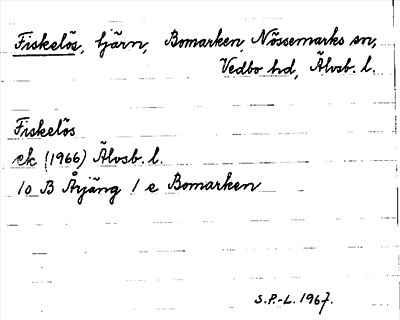 Fiskelös, tjärn, Bomarken, Nössemarks sn,
Vedbo hd, Älvsb. l.
Fiskelös
ek (1966) Älvsb. l.
10 B Årjäng 1 e Bomarken
S.P.-L. 1967.